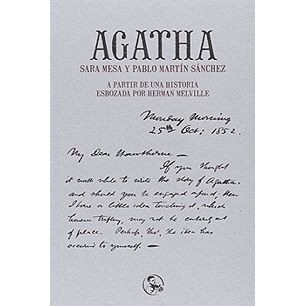 AGATHA
SARA MESA Y PABLO MARTÍN SÁNCHEZ
A PARTIR DE UNA HISTORIA
ESBOZADA POR HERMAN MELVILLE
Monday Morning
25th Oct: 1852.
My Dear Hawthorne —
If you thought
it worth while to write the story of Agatha,
and should you be engaged upon it, then
I have a little idea touching it, which
however trifling, may not be entirely out
of place. Perhaps, tho', the idea has
occurred to yourself. —